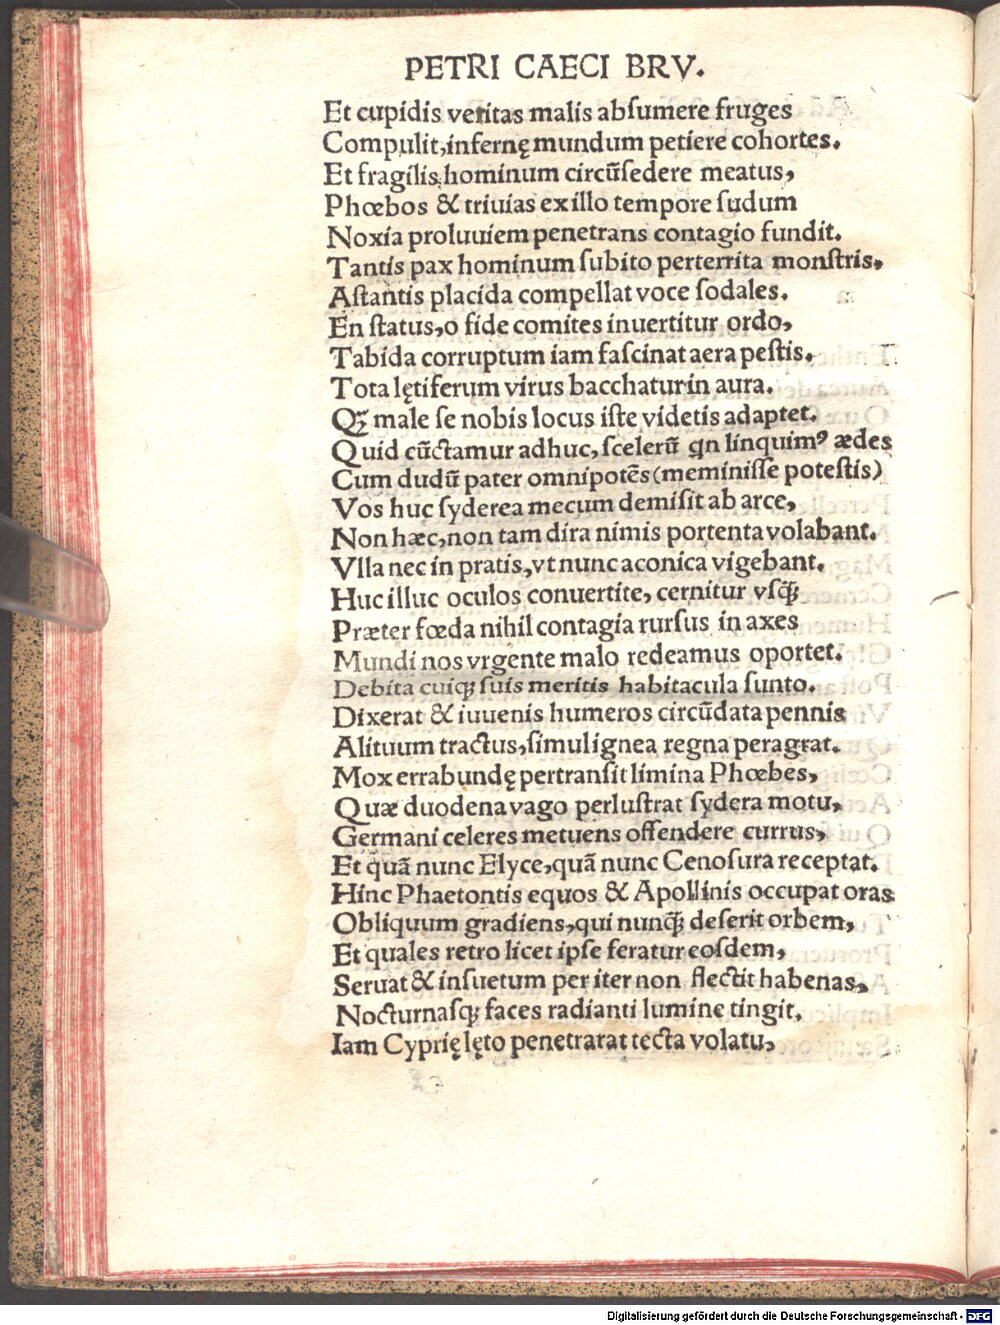 PETRI CAECI BRV.
Et cupidis veritas malis abſumere fruges
Compulit,infernę mundum petiere cohortes.
Et fragilis hominum circũſedere meatus,
Phœbos & triuias ex illo tempore ſudum
Noxia proluuiem penetrans contagio fundit.
Tantis pax hominum ſubito perterrita monſtris,
Aſtantis placida compellat voce ſodales.
En ſtatus,o fide comites inuertitur ordo,
Tabida corruptum iam faſcinat aera peſtis.
Tota lętiferum virus bacchatur in aura.
Qꝫ male ſe nobis locus iſte videtis adaptet.
Quid cũctamur adhuc, ſcelerũ qn linquimꝰ ædes
Cum dudũ pater omnipotẽs (meminiſſe poteſtis)
Vos huc ſyderea mecum demiſit ab arce,
Non hæc,non tam dira nimis portenta volabant.
Vlla nec in pratis,vt nunc aconica vigebant.
Huc illuc oculos conuertite, cernitur vſq̃ꝫ
Præter fœda nihil contagia rurſus in axes
Mundi nos vrgente malo redeamus oportet.
Debita cuiqꝫ ſuis meritis habitacula ſunto.
Dixerat & iuuenis humeros circũdata pennis
Alituum tractus,ſimul ignea regna peragrat.
Mox errabundę pertranſit limina Phœbes,
Quæ duodena vago perluſtrat ſydera motu,
Germani celeres metuens offendere currus,
Et quã nunc Elyce,quã nunc Cenoſura receptat.
Hinc Phaetontis equos & Apollinis occupat oras
Obliquum gradiens,qui nunq̃ꝫ deſerit orbem,
Et quales retro licet ipſe feratur eoſdem,
Seruat & inſuetum per iter non flectit habenas,
Nocturnaſqꝫ faces radianti lumine tingit,
Iam Cyprię lęto penetrarat tecta volatu,
Digitalisierung gefördert durch die Deutsche Forschungsgemeinschaft - DFG